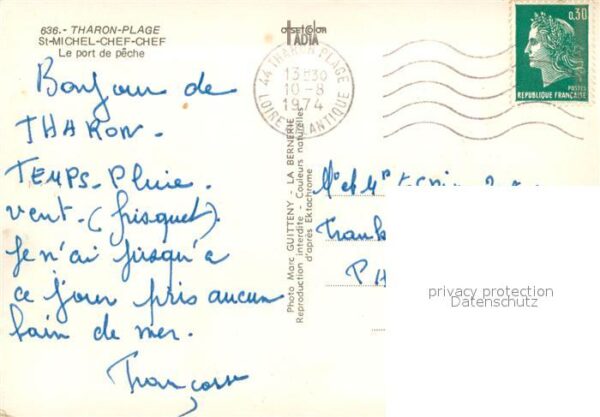 636. - THARON-PLAGE
St-MICHEL-CHEF-CHEF
Le port de pêche
offset color
IADIA
44 THARON-PLAGE
13H30
10-8
1974
LOIRE ATLANTIQUE
0,30
POSTES
REPUBLIQUE FRANÇAISE
Bonjour de
THARON.
TEMPS - Pluie.
vent - (frisquet).
Je n'ai jusqu'à
ce jour pris aucun
bain de mer.
Photo Marc GUITTENY - LA BERNERIE
Reproduction interdite - Couleurs naturelles
d'après Ektachrome
Mr et Mme
privacy protection
Datenschutz